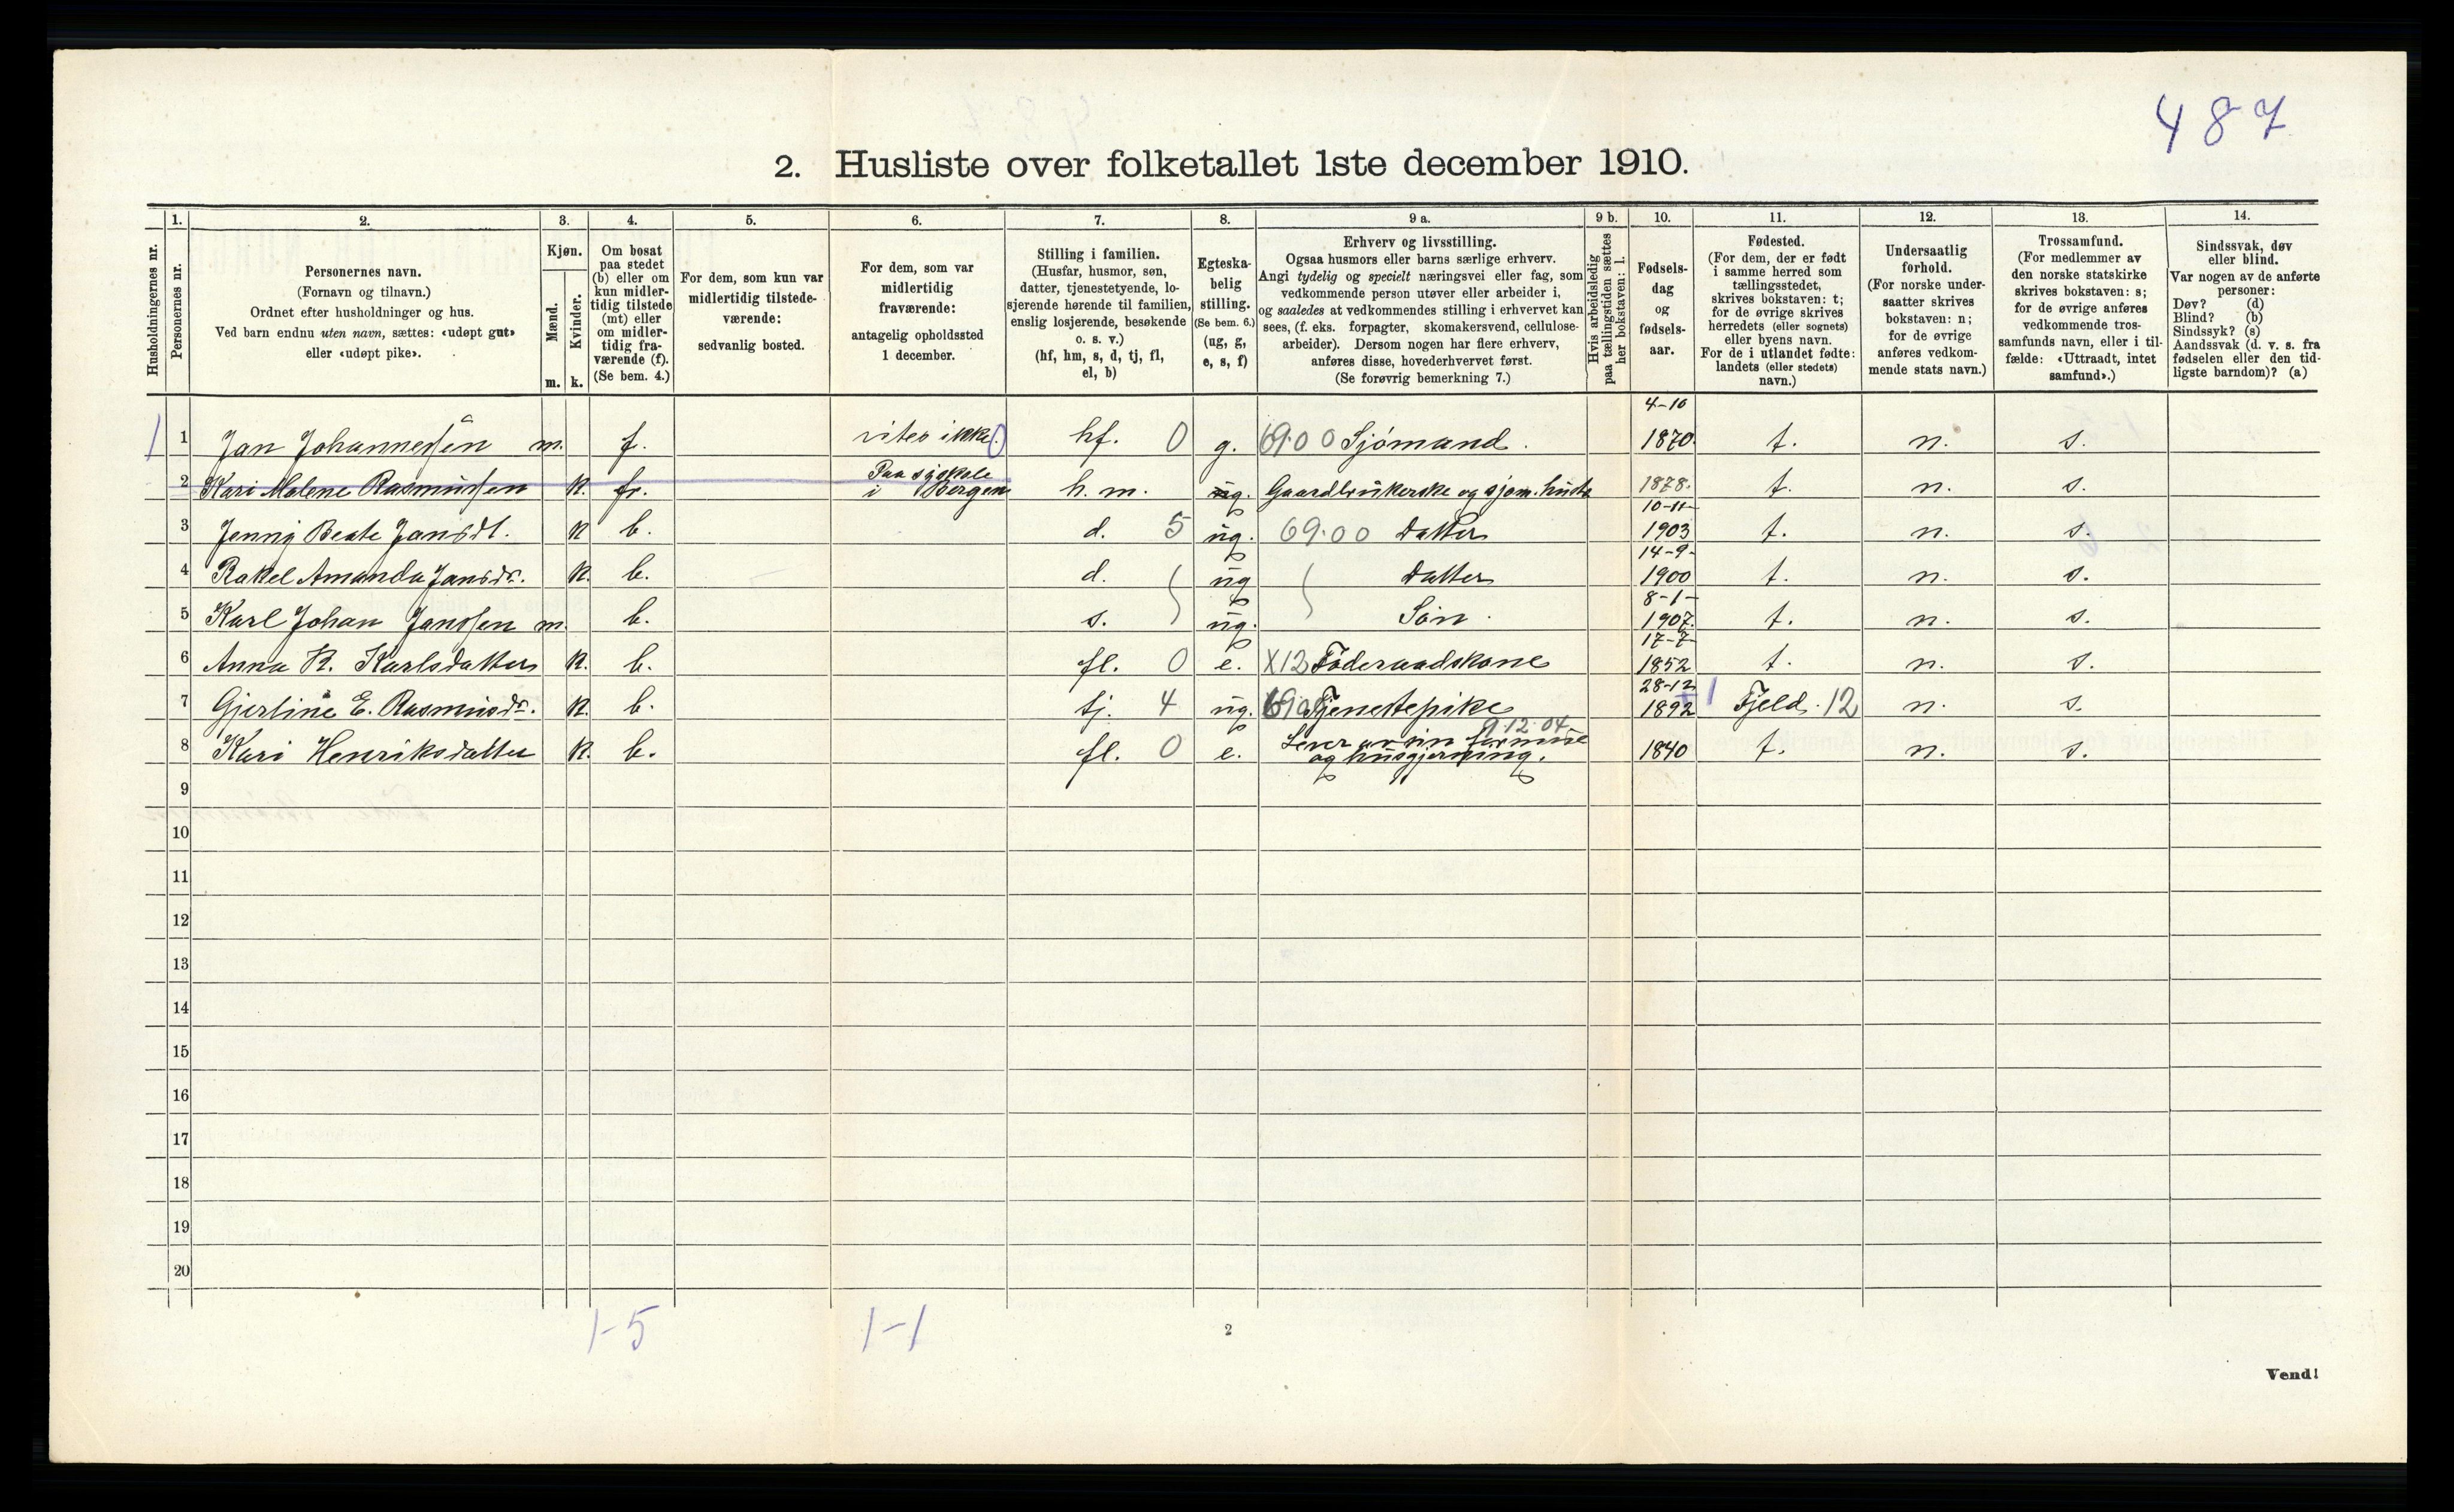 487
2. Husliste over folketallet 1ste december 1910.
Husholdningernes nr.
1.
Personernes nr.
2.
Personernes navn.
(Fornavn og tilnavn.)
Ordnet efter husholdninger og hus.
Ved barn endnu uten navn, sættes: «udøpt gut»
eller «udøpt pike».
3.
Kjøn.
Mænd.
Kvinder.
m. k.
4.
Om bosat
paa stedet
(b) eller om
kun midler-
tidig tilstede
(mt) eller
om midler-
tidig fra-
værende (f).
(Se bem. 4.)
5.
For dem, som kun var
midlertidig tilstede-
værende:
sedvanlig bosted.
6.
For dem, som var
midlertidig
fraværende:
antagelig opholdssted
1 december.
7.
Stilling i familien.
(Husfar, husmor, søn,
datter, tjenestetyende, lo-
sjerende hørende til familien,
enslig losjerende, besøkende
o. s. v.)
(hf, hm, s, d, tj, fl,
el, b)
8.
Egteska-
belig
stilling.
(Se bem. 6.)
(ug, g,
e, s, f)
9 a.
Erhverv og livsstilling.
Ogsaa husmors eller barns særlige erhverv.
Angi tydelig og specielt næringsvei eller fag, som
vedkommende person utøver eller arbeider i,
og saaledes at vedkommendes stilling i erhvervet kan
sees, (f. eks. forpagter, skomakersvend, cellulose-
arbeider). Dersom nogen har flere erhverv,
anføres disse, hovederhvervet først.
(Se forøvrig bemerkning 7.)
9 b.
Hvis arbeidsledig
paa tællingstiden sættes
her bokstaven: l.
10.
Fødsels-
dag
og
fødsels-
aar.
11.
Fødested.
(For dem, der er født
i samme herred som
tællingsstedet,
skrives bokstaven: t;
for de øvrige skrives
herredets (eller sognets)
eller byens navn.
For de i utlandet fødte:
landets (eller stedets)
navn.)
12.
Undersaatlig
forhold.
(For norske under-
saatter skrives
bokstaven: n;
for de øvrige
anføres vedkom-
mende stats navn.)
13.
Trossamfund.
(For medlemmer av
den norske statskirke
skrives bokstaven: s;
for de øvrige anføres
vedkommende tros-
samfunds navn, eller i til-
fælde: «Uttraadt, intet
samfund».)
14.
Sindssvak, døv
eller blind.
Var nogen av de anførte
personer:
Døv? (d)
Blind? (b)
Sindssyk? (s)
Aandssvak (d. v. s. fra
fødselen eller den tid-
ligste barndom)? (a)
1 1 Jan Johannessen m. f. vites ikke. 0 hf. 0 g. 69.00 Sjömand. 4-10 1870 t. n. s.
2 Kari Malene Rasmussen k. fr. Paa sygkele i Bergen h.m. g. Gaardbrukerske og sjom. hustr 1878. t. n. s.
3 Jenny Beate Jansdt. k b. d. 5 ug. 69.00 Datter 10-11- 1903 t. n. s.
4 Rakel Amanda Jansdr. k. b. d. ug Datter 14-9- 1900 t. n. s.
5 Karl Johan Janssen m. b. s. ug. Sön. 8-1- 1907. t. n. s.
6 Anna K. Karlsdatter k. b. fl. 0 e. X12 Föderaadskone 17-7- 1852 t. n. s.
7 Gjertine E. Rasmusdr. k. b. tj. 4 ug. Tjenestepike 28-12 1892 1 Fjeld. 12 n. s.
8 Kari Henriksdatter k. b. fl. 0 e. 9.12.04 Lever av sin formue og husgjerning. 1840 t. n. s.
9
10
11
12
13
14
15
16
17
18
19
20
1-5 1-1
2
Vend!